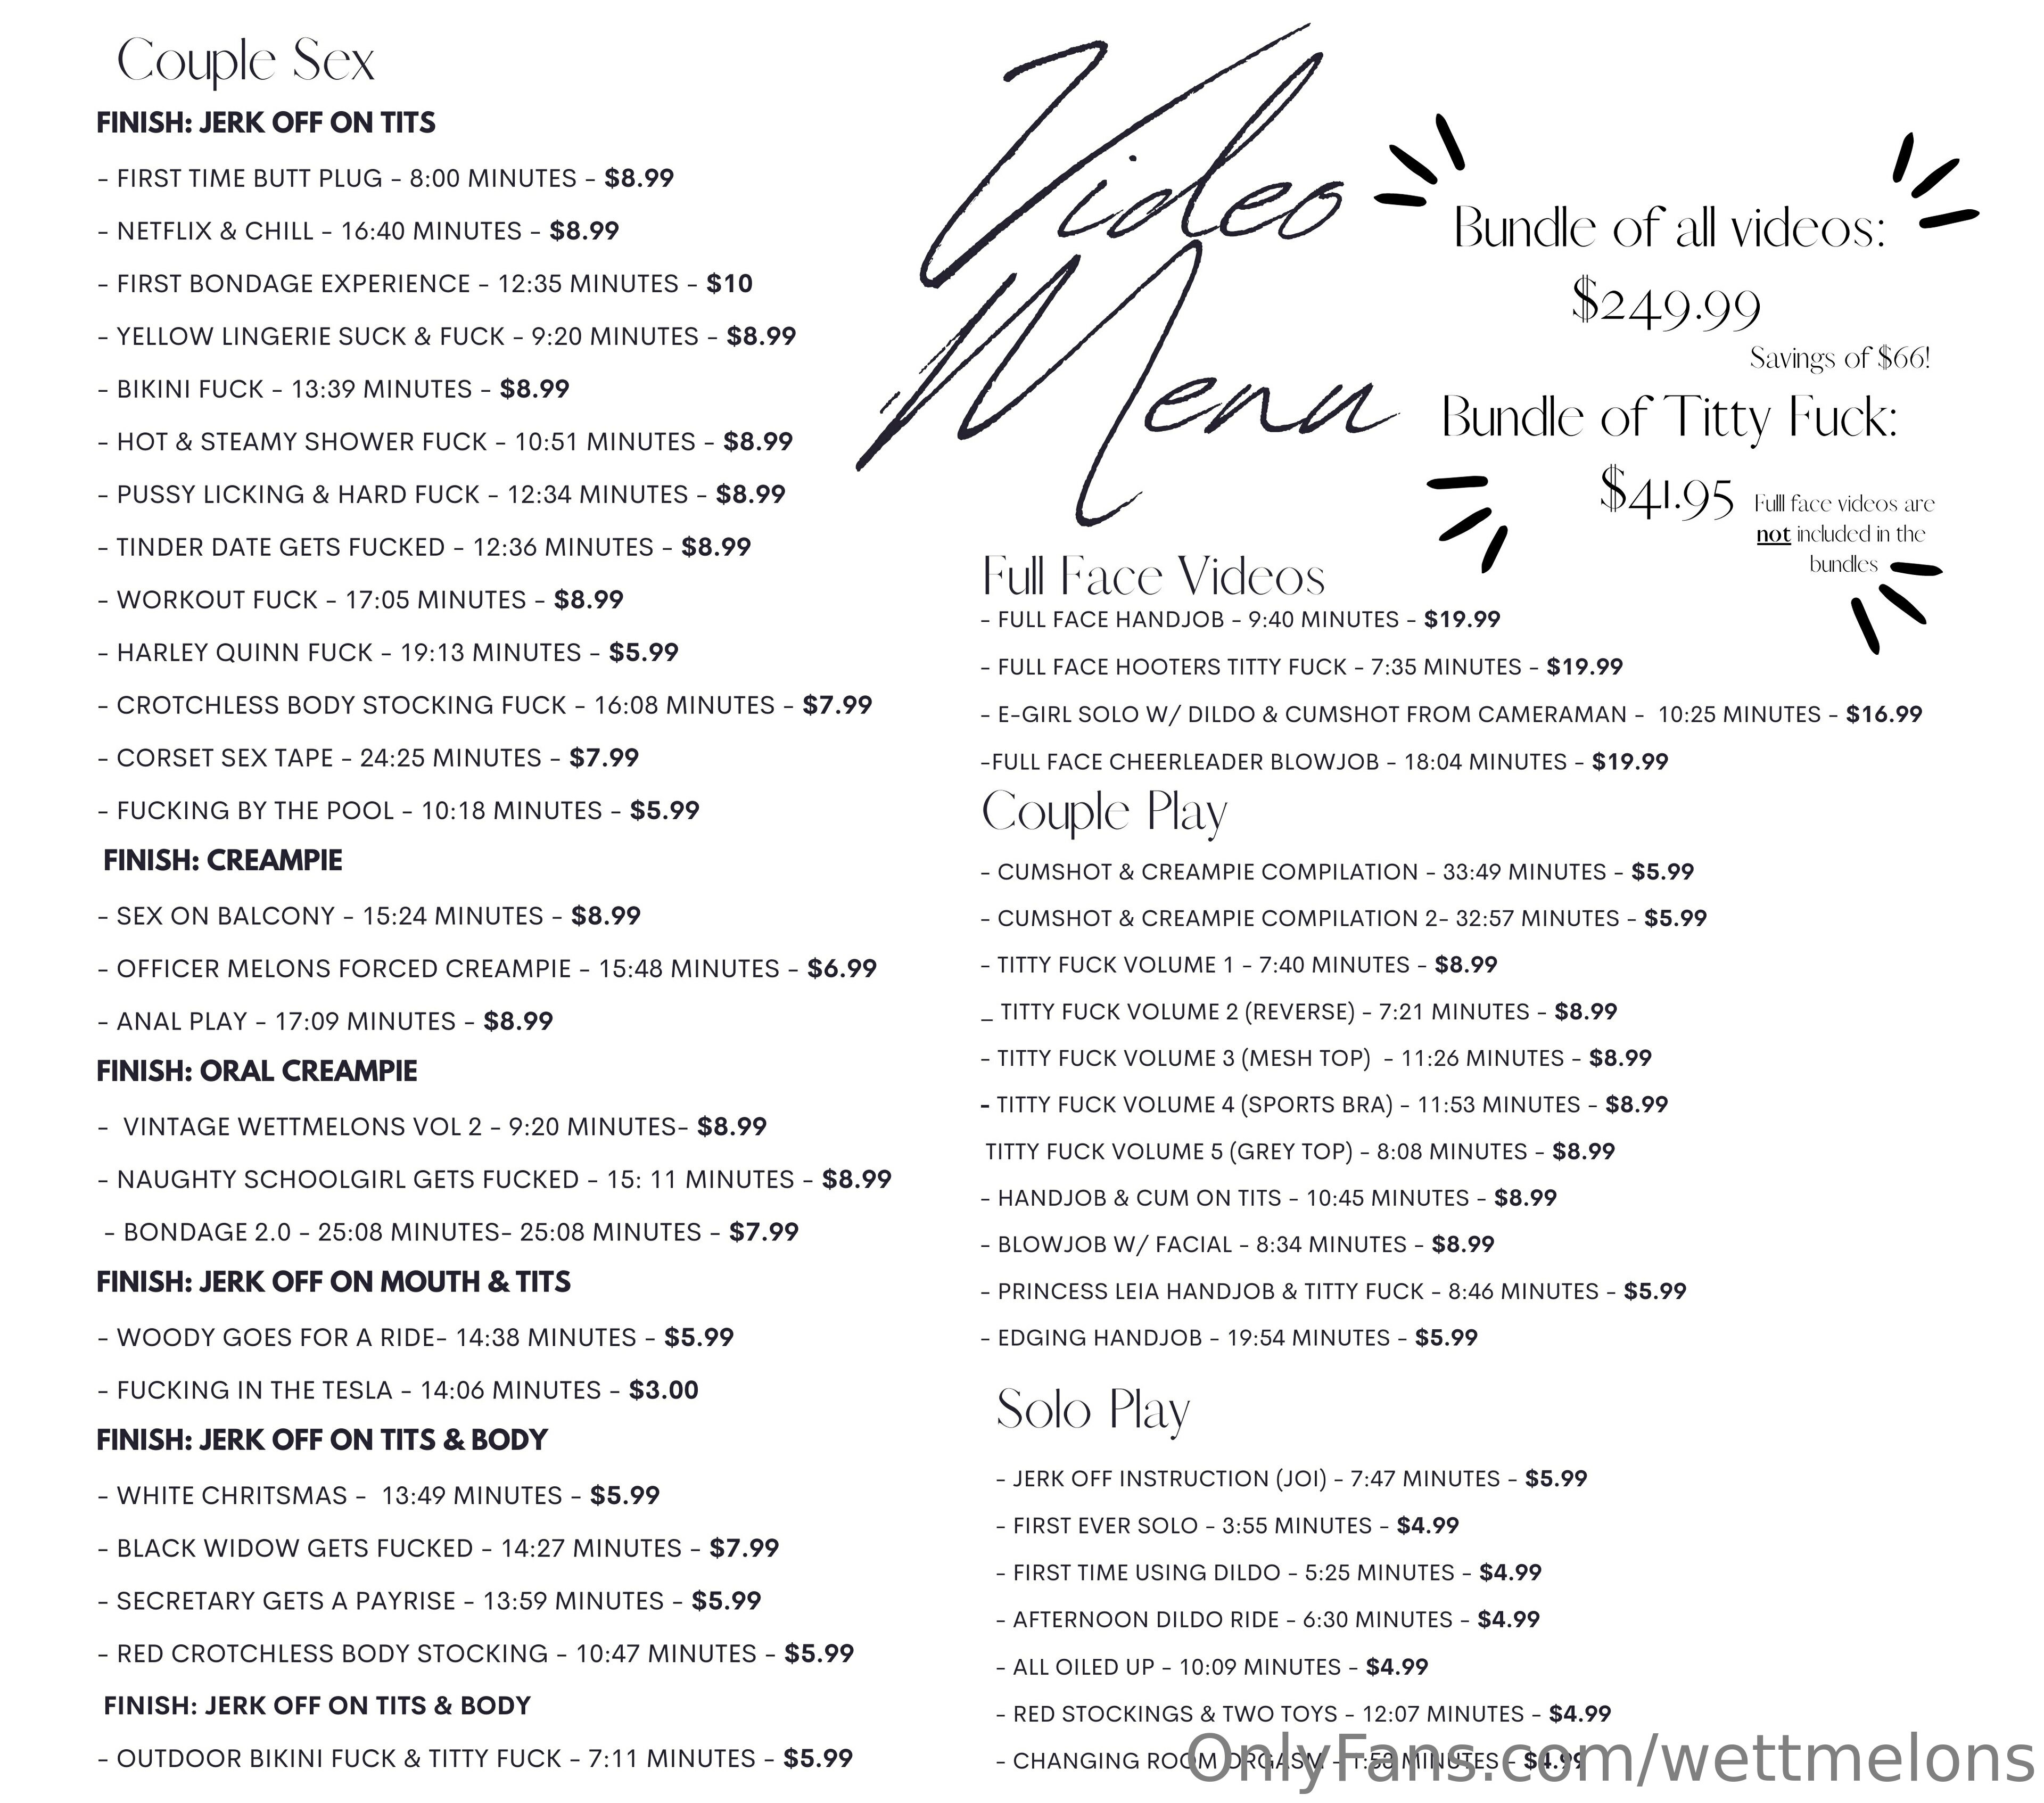 Couple Sex
FINISH: JERK OFF ON TITS
- FIRST TIME BUTT PLUG - 8:00 MINUTES - $8.99
- NETFLIX & CHILL - 16:40 MINUTES - $8.99
- FIRST BONDAGE EXPERIENCE - 12:35 MINUTES - $10
- YELLOW LINGERIE SUCK & FUCK - 9:20 MINUTES - $8.99
- BIKINI FUCK - 13:39 MINUTES - $8.99
- HOT & STEAMY SHOWER FUCK - 10:51 MINUTES - $8.99
- PUSSY LICKING & HARD FUCK - 12:34 MINUTES - $8.99
- TINDER DATE GETS FUCKED - 12:36 MINUTES - $8.99
- WORKOUT FUCK - 17:05 MINUTES - $8.99
- HARLEY QUINN FUCK - 19:13 MINUTES - $5.99
- CROTCHLESS BODY STOCKING FUCK - 16:08 MINUTES - $7.99
- CORSET SEX TAPE - 24:25 MINUTES - $7.99
- FUCKING BY THE POOL - 10:18 MINUTES - $5.99
FINISH: CREAMPIE
- SEX ON BALCONY - 15:24 MINUTES - $8.99
- OFFICER MELONS FORCED CREAMPIE - 15:48 MINUTES - $6.99
- ANAL PLAY - 17:09 MINUTES - $8.99
FINISH: ORAL CREAMPIE
- VINTAGE WETTMELONS VOL 2 - 9:20 MINUTES- $8.99
- NAUGHTY SCHOOLGIRL GETS FUCKED - 15: 11 MINUTES - $8.99
- BONDAGE 2.0 - 25:08 MINUTES- 25:08 MINUTES - $7.99
FINISH: JERK OFF ON MOUTH & TITS
- WOODY GOES FOR A RIDE- 14:38 MINUTES - $5.99
- FUCKING IN THE TESLA - 14:06 MINUTES - $3.00
FINISH: JERK OFF ON TITS & BODY
- WHITE CHRITSMAS - 13:49 MINUTES - $5.99
- BLACK WIDOW GETS FUCKED - 14:27 MINUTES - $7.99
- SECRETARY GETS A PAYRISE - 13:59 MINUTES - $5.99
- RED CROTCHLESS BODY STOCKING - 10:47 MINUTES - $5.99
FINISH: JERK OFF ON TITS & BODY
- OUTDOOR BIKINI FUCK & TITTY FUCK - 7:11 MINUTES - $5.99
Video
Menu
Bundle of all videos:
$249.99
Savings of $66!
Bundle of Titty Fuck:
$41.95
Fulll face videos are
not included in the
bundles
Full Face Videos
- FULL FACE HANDJOB - 9:40 MINUTES - $19.99
- FULL FACE HOOTERS TITTY FUCK - 7:35 MINUTES - $19.99
- E-GIRL SOLO W/ DILDO & CUMSHOT FROM CAMERAMAN - 10:25 MINUTES - $16.99
-FULL FACE CHEERLEADER BLOWJOB - 18:04 MINUTES - $19.99
Couple Play
- CUMSHOT & CREAMPIE COMPILATION - 33:49 MINUTES - $5.99
- CUMSHOT & CREAMPIE COMPILATION 2- 32:57 MINUTES - $5.99
- TITTY FUCK VOLUME 1 - 7:40 MINUTES - $8.99
_ TITTY FUCK VOLUME 2 (REVERSE) - 7:21 MINUTES - $8.99
- TITTY FUCK VOLUME 3 (MESH TOP) - 11:26 MINUTES - $8.99
- TITTY FUCK VOLUME 4 (SPORTS BRA) - 11:53 MINUTES - $8.99
TITTY FUCK VOLUME 5 (GREY TOP) - 8:08 MINUTES - $8.99
- HANDJOB & CUM ON TITS - 10:45 MINUTES - $8.99
- BLOWJOB W/ FACIAL - 8:34 MINUTES - $8.99
- PRINCESS LEIA HANDJOB & TITTY FUCK - 8:46 MINUTES - $5.99
- EDGING HANDJOB - 19:54 MINUTES - $5.99
Solo Play
- JERK OFF INSTRUCTION (JOI) - 7:47 MINUTES - $5.99
- FIRST EVER SOLO - 3:55 MINUTES - $4.99
- FIRST TIME USING DILDO - 5:25 MINUTES - $4.99
- AFTERNOON DILDO RIDE - 6:30 MINUTES - $4.99
- ALL OILED UP - 10:09 MINUTES - $4.99
- RED STOCKINGS & TWO TOYS - 12:07 MINUTES - $4.99
- CHANGING ROOM ORGASM - MINUTES - $4.99
OnlyFans.com/wettmelons